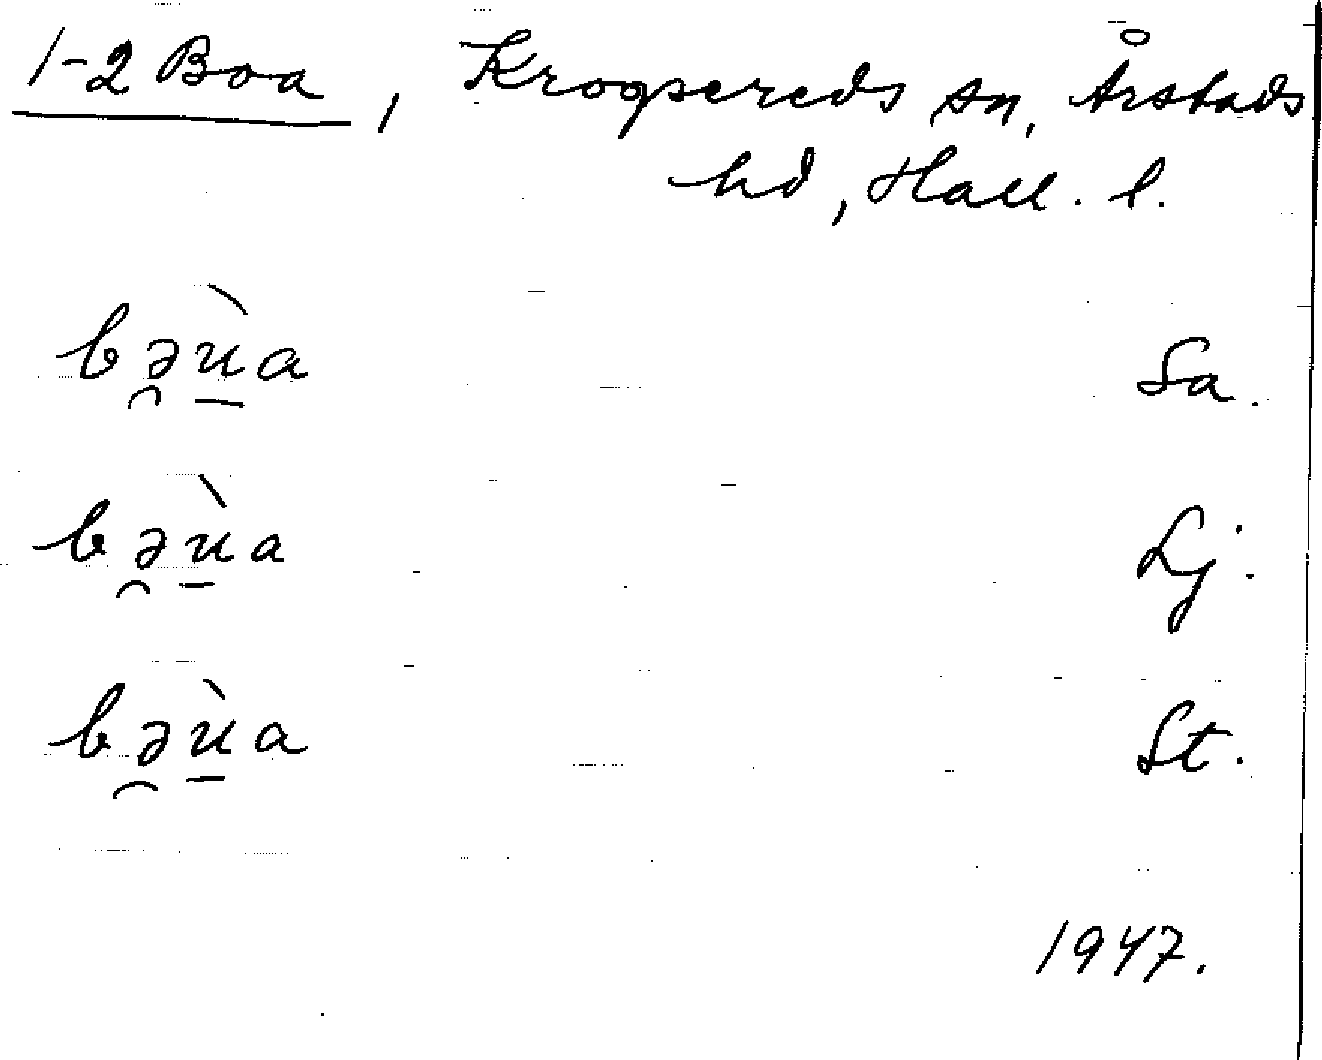 1-2 Boa, Krogsereds sn, Årstads
hd, Hall. l.
bə̯ṳ̀a Sa.
bə̯ṳ̀a Lj.
bə̯ṳ̀a St.
1947.